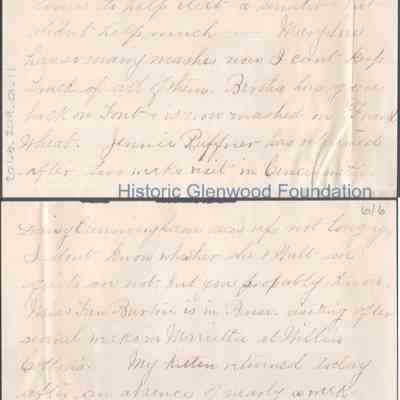 down to help elect a senator but
didn't help much — Maryline
has so many mashes now I can't keep
track of all of them. Bertha has gone
back on Font & is now mashed on Frank
Wheat. Jennie Ruffner has returned
after two weeks visit in Cincinnati.
2016.209.01.11
Historic Glenwood Foundation
6/6
Daisy Cunningham was up not long ago
I don't know whether she & Walt are
or not but you probably know.
Miss Fan Burton is in visiting after
several weeks in Marietta at Willis
Cotton's. My kitten returned today
after an absence of nearly a week